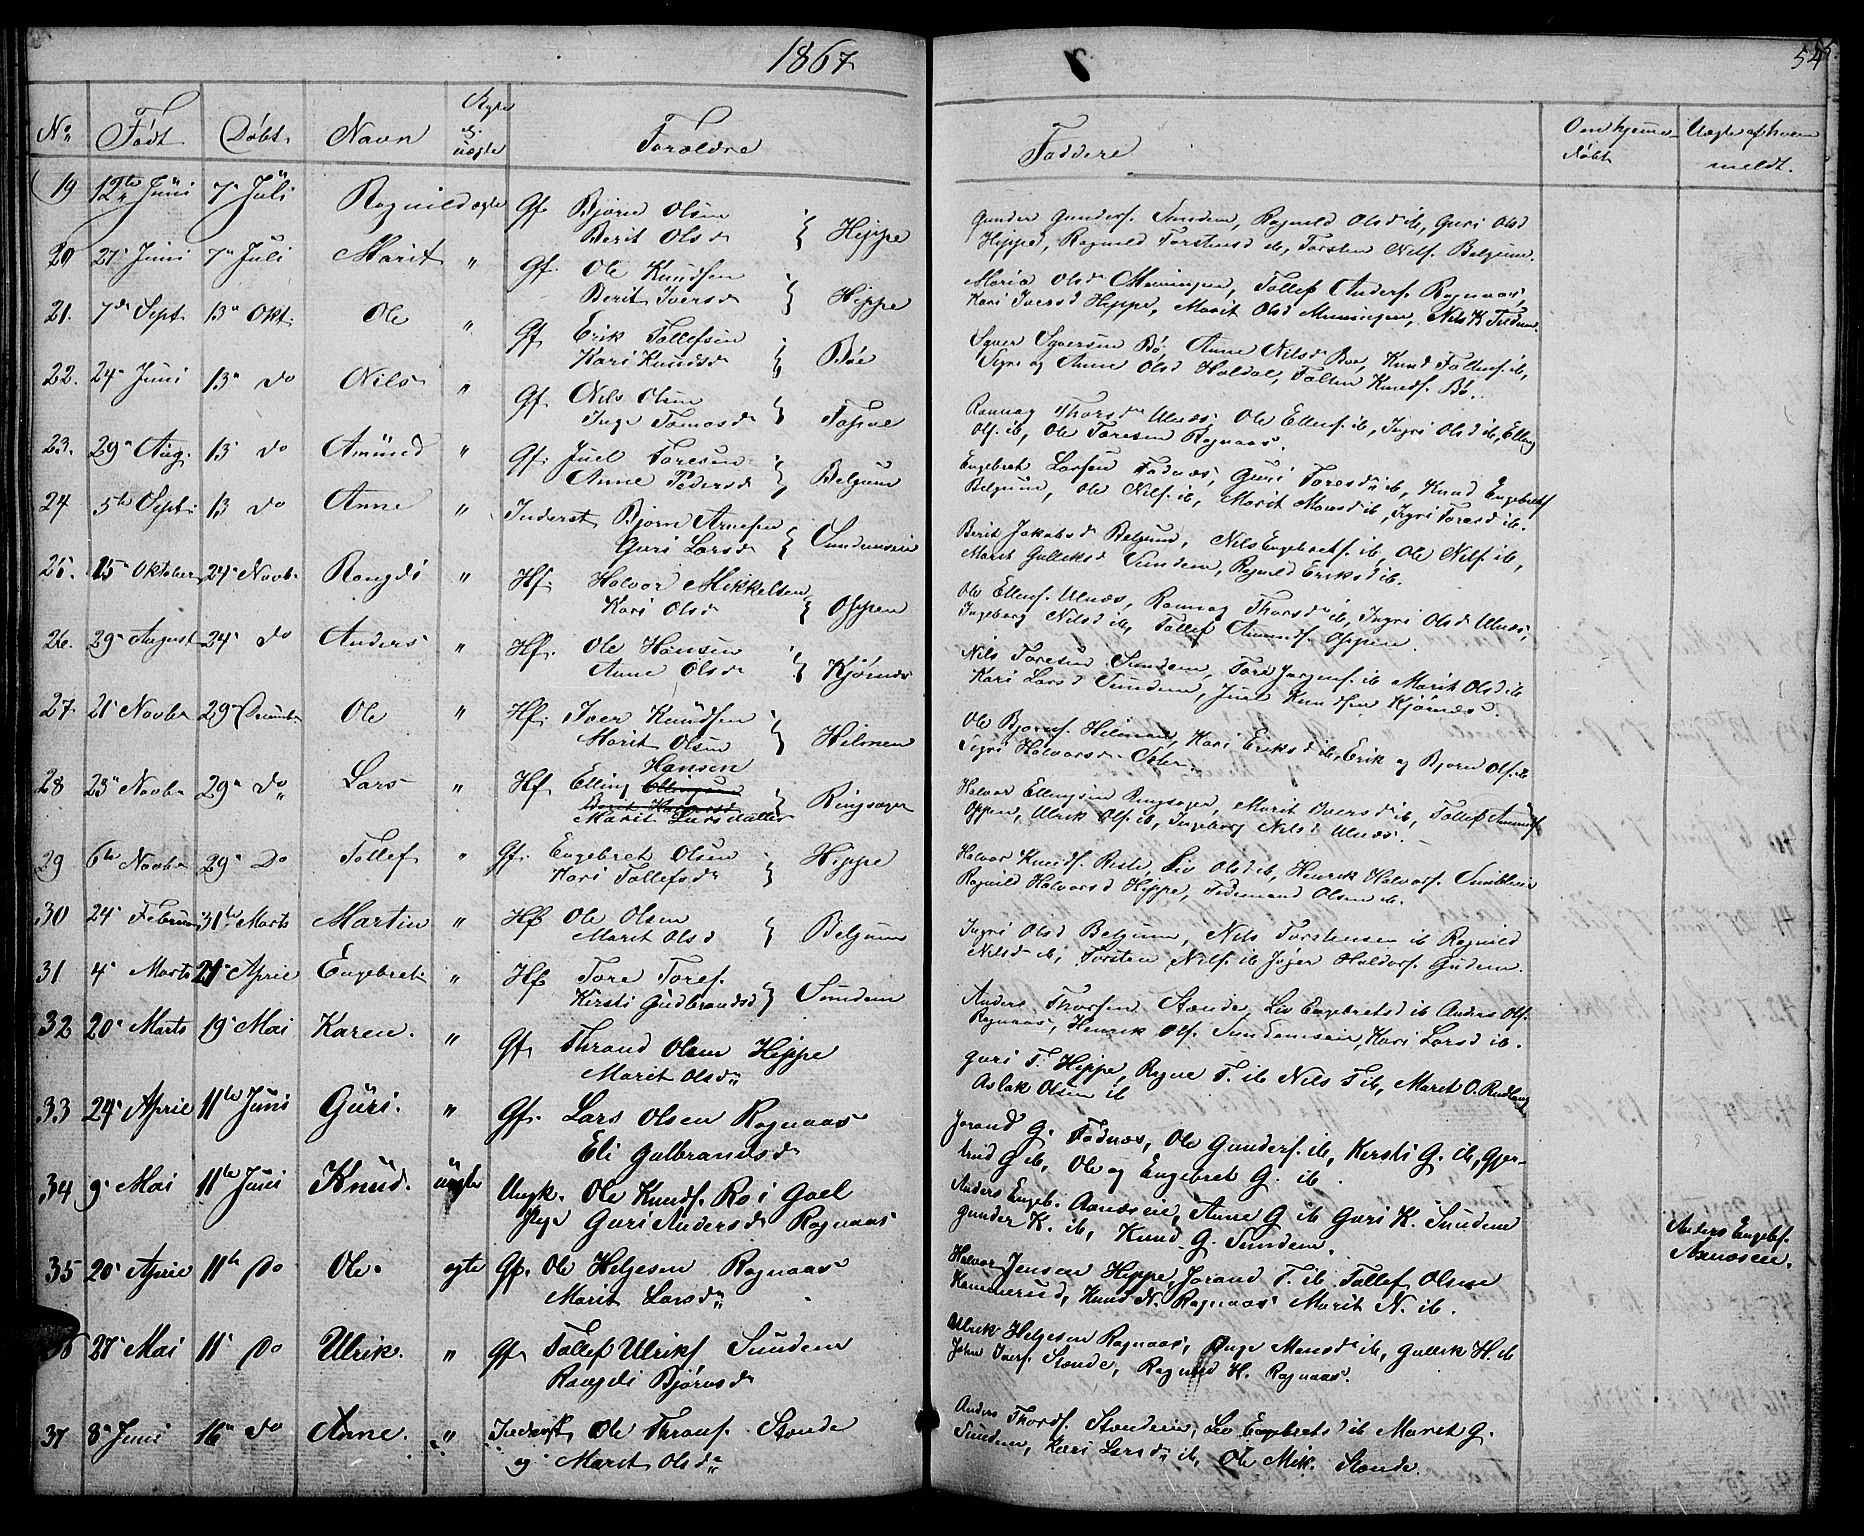 1867
54
No
Født
Døbt
Navn
Ægte el. uægte
Forældre
Faddere
Om hjemmedøbt
Uægte af hvem meldt.
19 12te Juni 7 Juli Ragnild ægte Gf. Bjørn Olsen
Berit Olsd } Hippe
Gunder Gundersf. Sundem, Ragnild Olsd ib, Guri Olsd
Hippe, Ragnild Torstensd ib, Torsten Nilsf. Belgum.
20 27 Juni 7 Juli Marit " Gf. Ole Knudsen
Berit Iversd } Hippe
Maria Olsd Menningen, Tollef Andersf. Ragnaas,
Kari Iversd Hippe, Marit Olsd Menningen, Nils K.
21. 7de Sept 13 Okt. Ole " Gf. Erik Tollefsen
Kari Knudsd } Bøe
Syver Syversen Bø, Anne Nilsd Bøe, Knud ib,
Sigri og Anne Olsd Haldal, Knudsf. Bø.
22. 24 Juni 13 do Nils " Gf. Nils Olsen
Inge Tomasd }
Rannog Thorsd Ulnæs, Ole Ellensf. ib, Ingri Olsd ib, Elling
Olsf. ib, Ole Toresen Ragnaas.
23. 29 Aug. 13 do Amund " Gf. Juel Toresen
Anne Pedersd } Belgum
Engebret Larsen Fadnæs, Guri Toresd ib, Knud Engebretsf
Belgum, Ole Nilsf. ib, Marit Monsd ib, Ingri Toresd ib.
24 5te Sept. 13 do Anne " Inderst Bjørn Arnesen
Guri Larsd } Sundemseie
Berit Jakobsd Belgum, Nils Engebretsf. ib, Ole Nilsf. ib,
Marit Gulleksd Sundem, Ragnild Eriksd ib.
25. 15 Oktober 24 Novb. Rangdi " Hf. Halvor Mikkelsen
Kari Olsd } Oppen
Ole Ellensf. Ulnæs, Rannog Thorsd ib, Ingri Olsd Ulnæs,
Ingeborg Nilsd ib, Tollef Amundsf. Oppen.
26. 29 August 24 do Anders " Hf. Ole Hansen
Anne Olsd } Kjørnæs
Nils Toresen Sundem, Tore ib Marit Olsd ib
Kari Larsd Sundem, Juel Knudsen Kjørnæs.
27 21 Novbr 29 Decembr Ole " Hf. Iver Knudsen
Marit Olsen } Hilmen
Ole Bjørnsf. Hilmen, Kari Eriksd ib, Erik og Bjørn Olsf. ib
Sigri Halvorsd
28 23 Novbr 29 do Lars " Hf. Elling Ellingsen Hansen
Berit Halvorsd
Marit Larsdatter } Ringsager
Halvor Ellingsen Ringsager, Marit Iversd ib, Tollef Amundsf
Oppen, Ulrik Olsf. ib, Ingeborg Nilsd Ulnæs.
29 6te Novbr 29 do Tollef " Gf. Engebret Olsen
Kari Tollefsd } Hippe
Halvor Knudsf. Riste, Liv Olsd ib, Henrik Halvorsf.
Ragnild Halvorsd Hippe, Olsen ib.
30 24 Februar 31te Marts Martin " Hf Ole Olsen
Marit Olsd } Belgum
Ingri Olsd Belgum, Nils Torstensen ib Ragnild
Nilsd ib, Torsten Nilsf. ib Haldorsf. Gudem.
31 4 Marts 21 April Engebret " Hf Tore Toresf.
Kirsti Gudbrandsd } Sundem
Anders Thorsen Stænde, Liv Engebretsd ib Anders Olsf.
Ragnaas, Henrik Olsf. Sundemseie, Kari Larsd ib.
32 20 Marts 19 Mai Karen. " Gf. Thrond Olsen Hippe
Marit Olsd
Guri T. Hippe, T. ib Nils T ib, Marit O. Rudlang
Aslak Olsen ib
33 24 April 11te Juni Guri. " Gf. Lars Olsen Ragnaas
Eli Gulbrandsd
Jorand G. Fadnæs, Ole Gundersf. ib, Kersti G. ib, Gjer-
trud G ib, Ole og Engebret G. ib.
34 9 Mai 11te Juni Knud. uægte Ungk. Ole Knudsf. Ro i Gael
Pige Guri Andersd Ragnaas
Anders Engeb. Aanæseie, Anne G ib Guri K. Sundem
Gunder K. ib, Knud G. Sundem.
Anders Engebf.
35 20 April 11te do Ole. ægte Gf. Ole Helgesen Ragnaas
Marit Larsd
Halvor Jensen Hippe, Jorand T. ib Tollef Olsen
Kammerud, Knud N. Ragnaas Marit N. ib.
36 27 Mai 11 do Ulrik. " Gf Tollef Ulriksf Sundem
Rangdi Bjørnsd
Ulrik Helgesen Ragnaas, Inge Monsd ib, Gullik H. ib
John Iversf. Stænde, Ragnild H. Ragnaas.
37 8 Juni 16 do Anne. " Inderst Ole Thronsf. Stænde
og Marit Olsd
Anders Thordsf. Stændeeie, Liv Engebretsd ib Maret G.
Sundem, Kari Larsd ib, Ole Mik. Stænde.